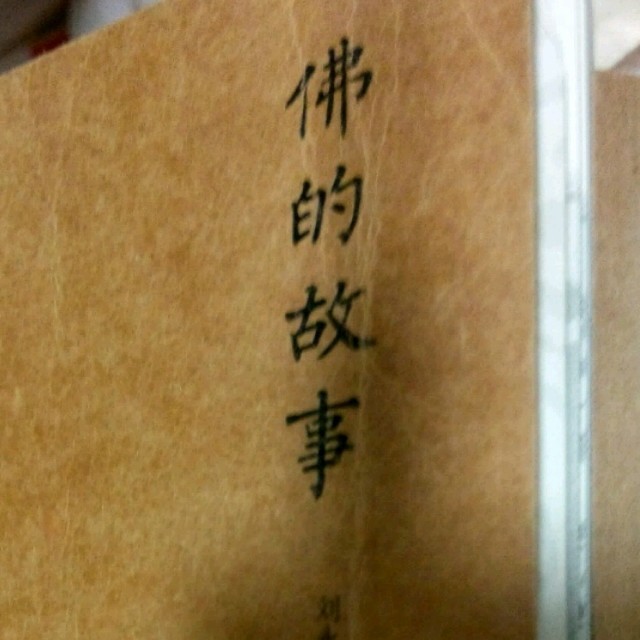 佛的故事